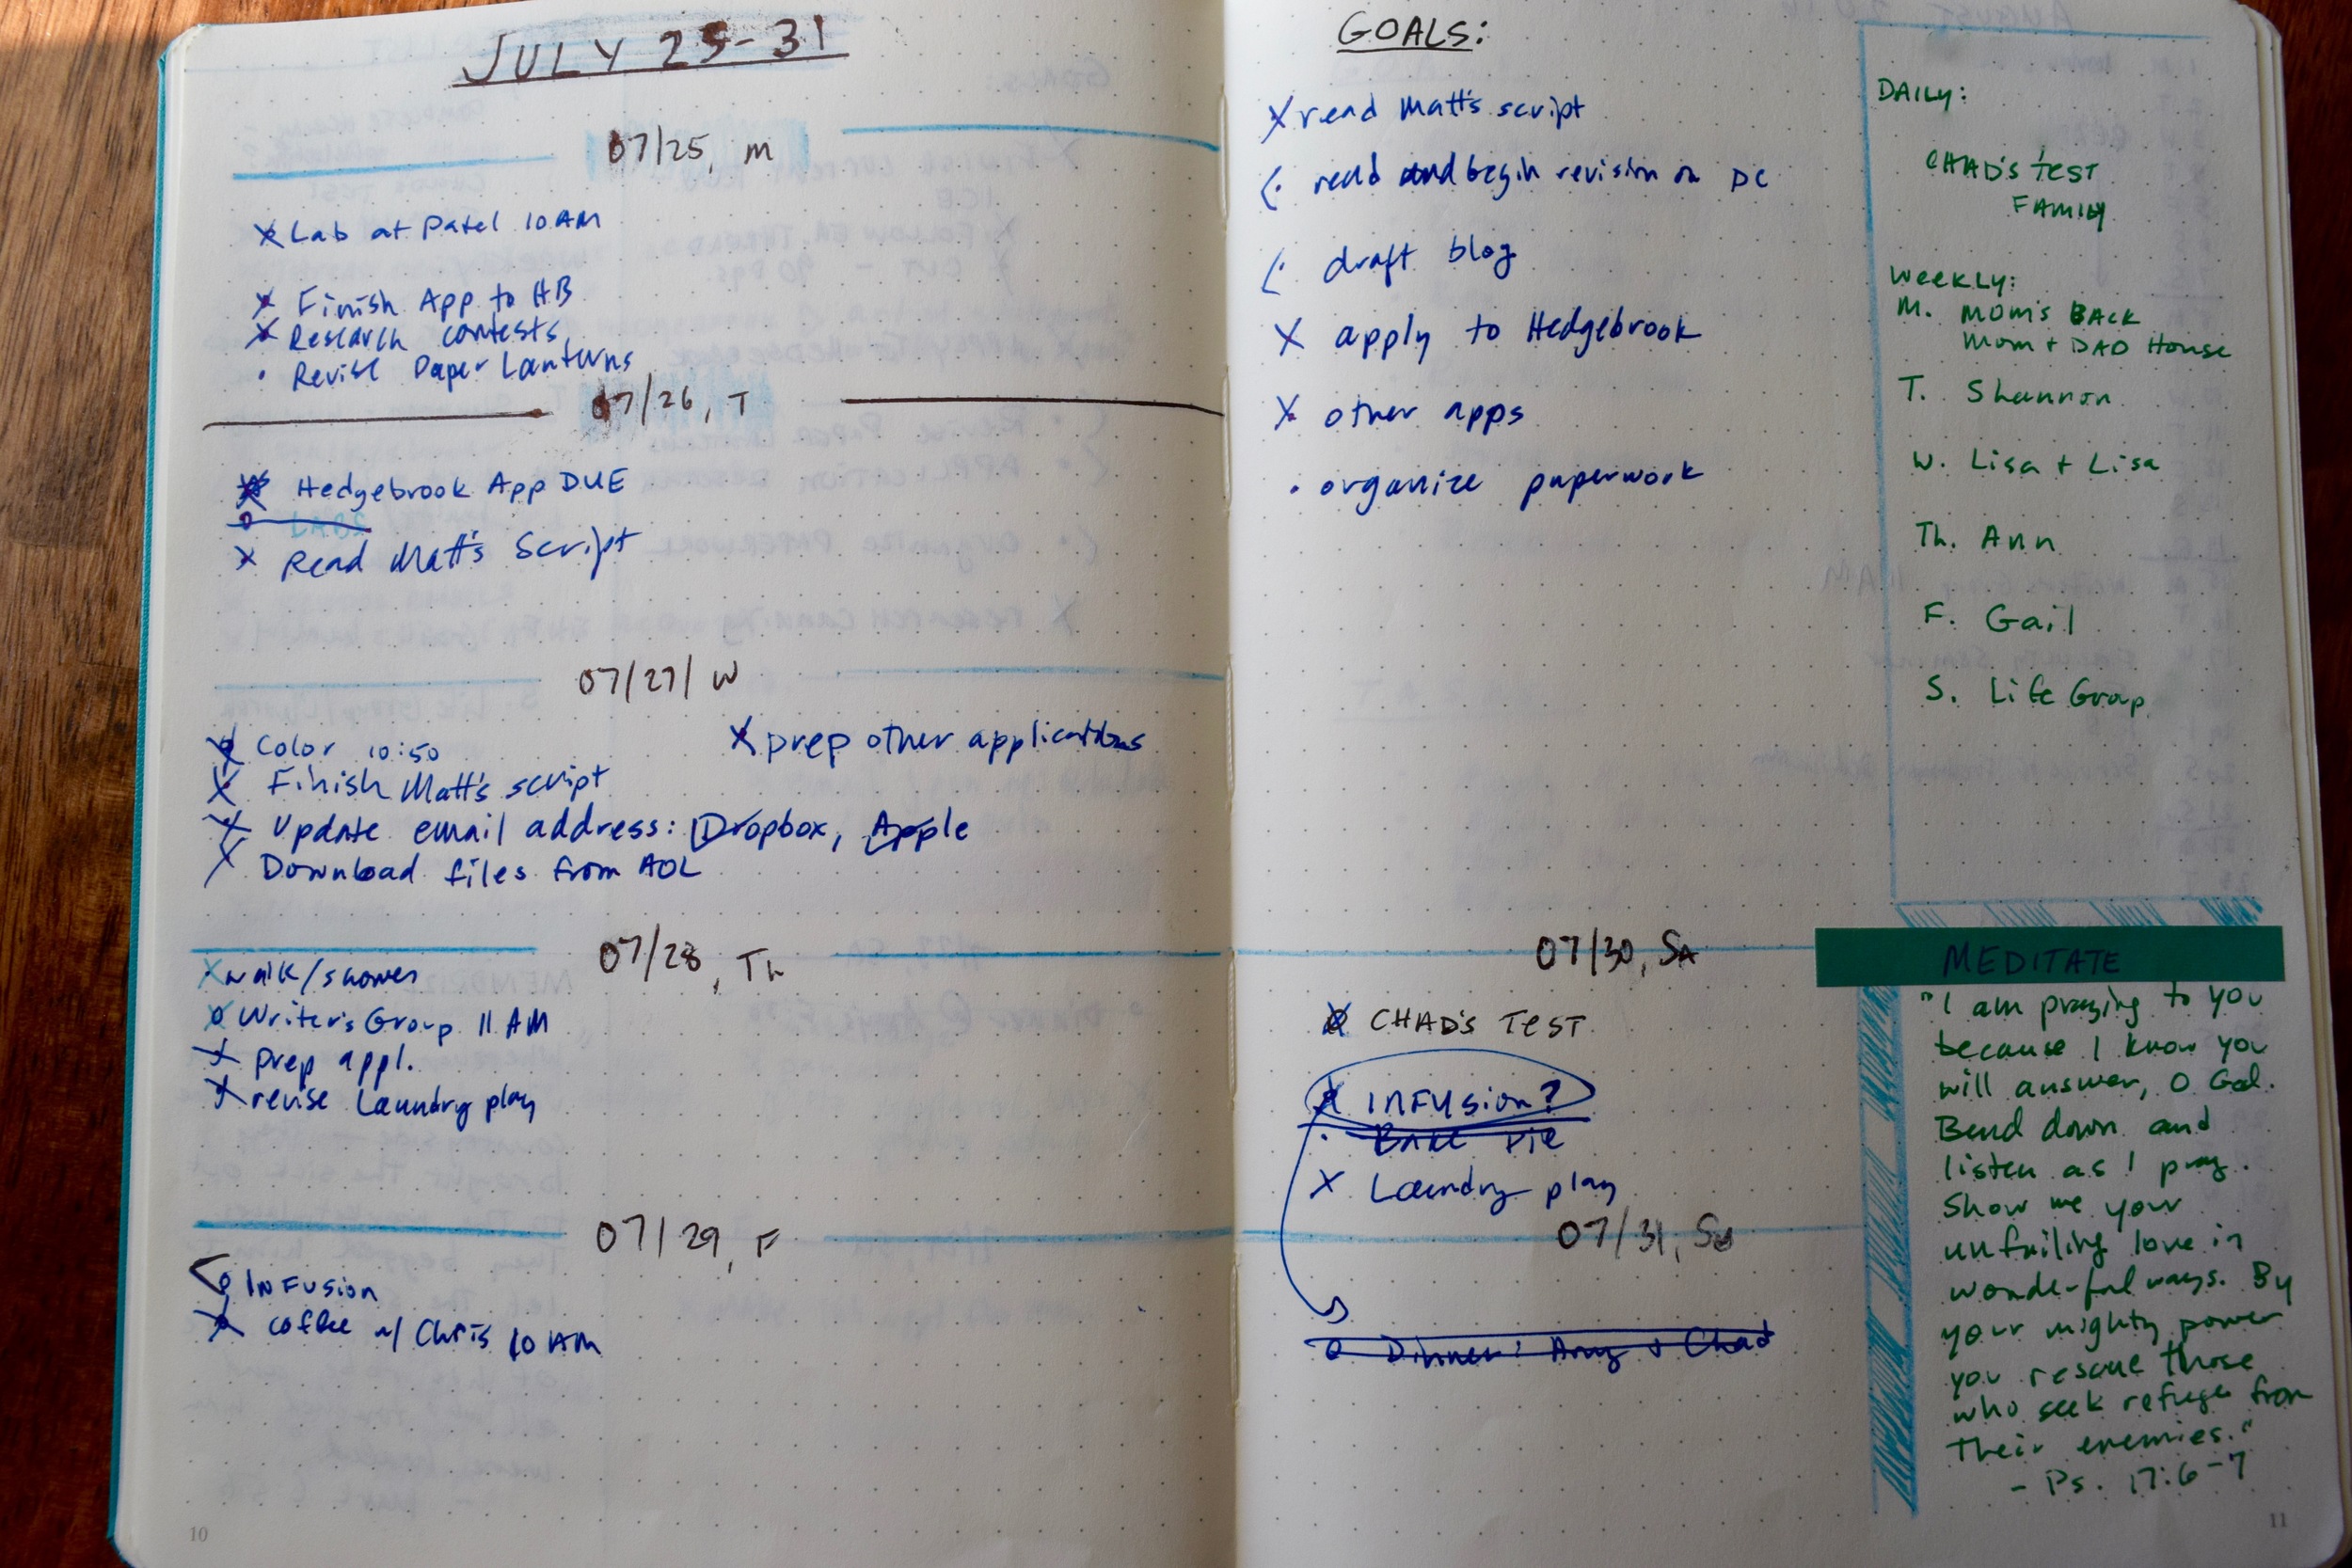 JULY 25-31
07/25, M
x Lab at Patel 10 AM
x Finish App to HB
x Research contests
• Revise Paper Lanterns
07/26, T
x Hedgebrook App DUE
LABS
x Read Matt's Script
07/27/ W
x Color 10:50
x prep other applications
x Finish Matt's script
x Update email address: Dropbox, Apple
x Download files from AOL
07/28, Th
x walk/shower
x Writer's Group 11 AM
x prep appl.
x revise Laundry play
07/29, F
< o INFUSION
x coffee w/ Chris 10 AM
10
GOALS:
x read Matt's script
< • read and begin revision on DC
< • draft blog
x apply to Hedgebrook
x other apps
• organize paperwork
DAILY:
CHAD'S TEST
FAMILY
WEEKLY:
M. MOM'S BACK
MOM + DAD House
T. Shannon
W. Lisa + Lisa
Th. Ann
F. Gail
S. Life Group
07/30, SA
x CHAD'S TEST
x INFUSION?
• BAKE PIE
x Laundry play
07/31, Su
o Dinner: Amy + Chad
MEDITATE
"I am praying to you
because I know you
will answer, O God.
Bend down and
listen as I pray.
Show me your
unfailing love in
wonderful ways. By
your mighty power
you rescue those
who seek refuge from
their enemies."
- Ps. 17:6-7
11